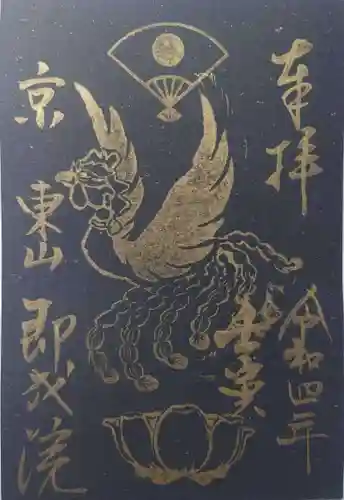 奉拝
令和四年
壬寅
京 東山 即成院